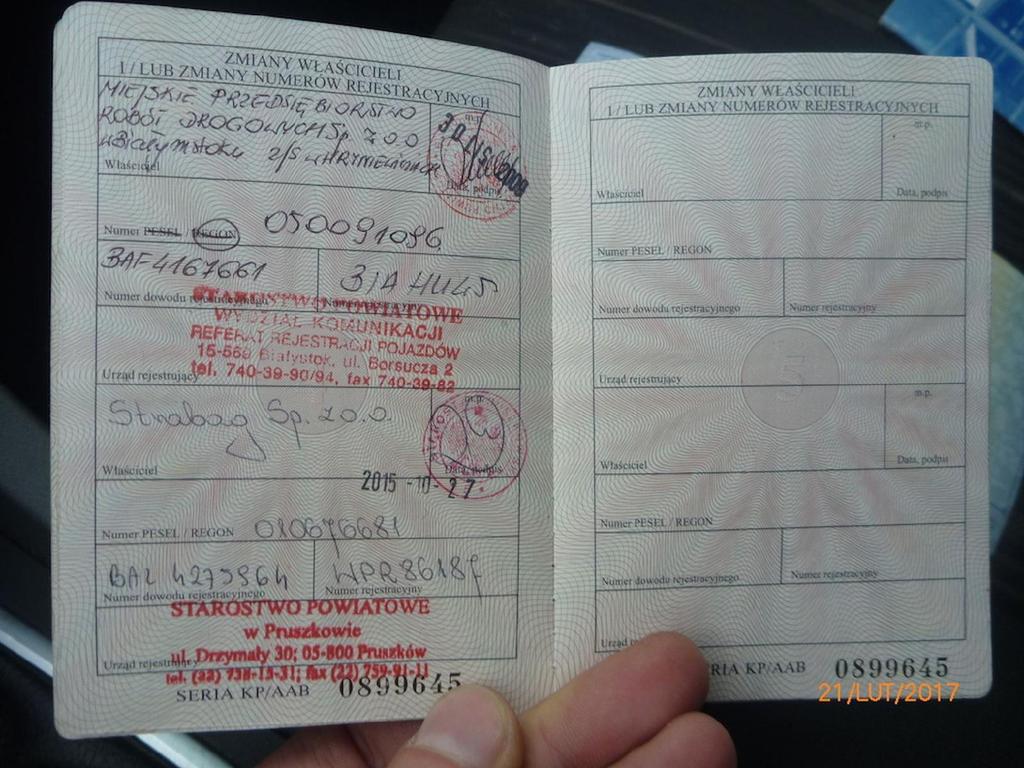 ZMIANY WŁAŚCICIELI
I / LUB ZMIANY NUMERÓW REJESTRACYJNYCH
MIEJSKIE PRZEDSIĘBIORSTWO
ROBÓT DROGOWYCH Sp. z o o
w Białymstoku z/s w HRYNIEWICZACH
m.p.
Właściciel
Data, podpis
Numer PESEL / REGON 050091096
BAF4167661
BIA HU45
Numer dowodu rejestracyjnego
Numer rejestracyjny
STAROSTWO POWIATOWE
WYDZIAŁ KOMUNIKACJI
REFERAT REJESTRACJI POJAZDÓW
15-569 Białystok, ul. Borsucza 2
tel. 740-39-90/94, fax 740-39-82
Urząd rejestrujący
Strabag Sp. z o.o.
m.p.
Właściciel
Data, podpis
2015 -10- 27
Numer PESEL / REGON 010676681
BAL 4279964
WPR8618F
Numer dowodu rejestracyjnego
Numer rejestracyjny
STAROSTWO POWIATOWE
w Pruszkowie
ul. Drzymały 30; 05-800 Pruszków
Urząd rejestrujący
tel. (22) 738-15-31; fax (22) 759-91-11
SERIA KP/AAB 0899645
ZMIANY WŁAŚCICIELI
I / LUB ZMIANY NUMERÓW REJESTRACYJNYCH
m.p.
Właściciel
Data, podpis
Numer PESEL / REGON
Numer dowodu rejestracyjnego
Numer rejestracyjny
5
Urząd rejestrujący
m.p.
Właściciel
Data, podpis
Numer PESEL / REGON
Numer dowodu rejestracyjnego
Numer rejestracyjny
Urząd
RIA KP/AAB 0899645
21/LUT/2017